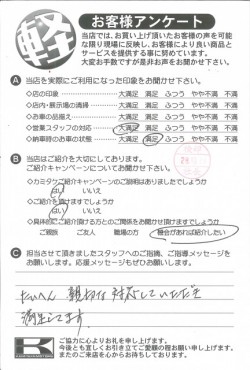 軽
お客様アンケート
当店では、お買い上げ頂いたお客様の声を可能
な限り現場に反映し、お客様により良い商品と
サービスを提供する事に努めています。
大変お手数ですが是非お声をお聞かせ下さい。
A 当店を実際にご利用になった印象をお聞かせ下さい。
◇店の印象 大満足 満足 ふつう やや不満 不満
◇店内・展示場の清掃 大満足 満足 ふつう やや不満 不満
◇お車の品揃え 大満足 満足 ふつう やや不満 不満
◇営業スタッフの対応 大満足 満足 ふつう やや不満 不満
◇納車時のお車の状態 大満足 満足 ふつう やや不満 不満
B 当店はご紹介を大切にしております。
ご紹介キャンペーンについてお聞かせ下さい。
◇カミタケご紹介キャンペーンのご説明はありましたでしょうか
はい いいえ
◇ご紹介を頂けますでしょうか
はい いいえ
◇具体的にご紹介頂ける方とのご関係をお聞かせ頂けますでしょうか
ご親類 ご友人 職場の方 機会があれば紹介したい
C 担当させて頂きましたスタッフへのご指摘、ご指導メッセージを
お願いします。応援メッセージもぜひお願いします。
たいへん 親切な 対応していただき
満足してます。
K
ご協力に心よりお礼を申し上げます。
今後とも宜しくお引き立てご愛顧の程お願い申し上げます。
またのご来店を心からお待ちしております。